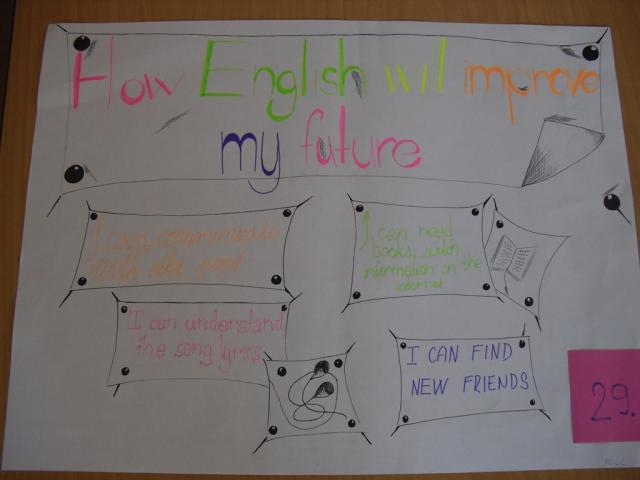 How English will improve
my future
I can communicate
with
I can read
books,
information on the
internet
I can understand
the song lyrics
I CAN FIND
NEW FRIENDS
29.